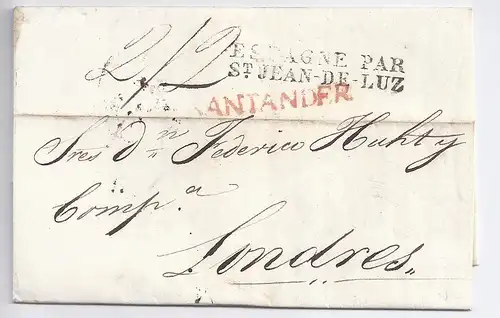 2/2
ESPAGNE PAR
ST JEAN-DE-LUZ
SANTANDER
Sres Dn Federico Huht y
Comp.a
Londres